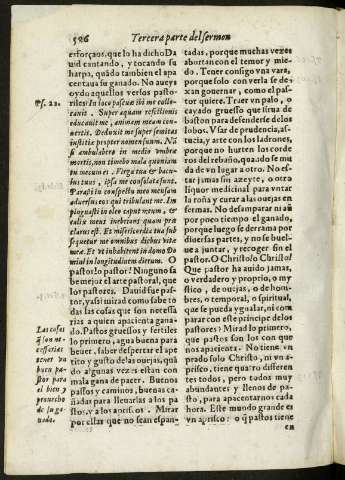 526
Tercera parte del sermon
esforçaos, que lo ha dicho Da
uid cantando, y tocando su
harpa, quãdo tambien el apa
centaua su ganado. No aueys
oydo aquellos versos pasto-
riles: In loco pascuæ ibi me collo-
cauit. Super aquam refectionis
educauit me, animam meam con-
uertit. Deduxit me super semitas
iustitiæ propter nomen suum. Nã
si ambulabero in medio vmbræ
mortis, non timebo mala quoniam
tu mecum es. Virga tua & bacu-
lus tuus, ipsa me consolata sunt.
Parasti in conspectu meo mensam
aduersus eos qui tribulant me. Im
pinguasti in oleo caput meum, &
calix meus inebrians quam præ
clarus est. Et misericordia tua sub
sequetur me omnibus diebus vitæ
meæ. Et vt inhabitem in domo Do
mini in longitudinem dierum. O
pastor! o pastor! Ninguno sa
be mejor el arte pastoral, que
los pastores. Dauid fue pastor,
y assi mirad como sabe to
das las cosas que son necessa
rias a quien apacienta gana-
do. Pastos gruessos y fertiles
lo primero, agua buena para
beuer, saber despertar el ape
tito y gusto de las ouejas, quã
do algunas vezes estan con
mala gana de pacer. Buenos
passos y caminos, buenas ca-
ñadas para lleuarlas a los pa
stos, y a los apriscos. Mirar
por ellas que no sean espan-
Ps. 22.
Las cosas
q̃ son ne-
cessarias
tiene bue
pa-
stor para
el bien y
prouecho
de su ga-
nado.
tadas, porque muchas vezes
abortan con el temor y mie-
do. Tener consigo vna vara,
porque solo con verla se de-
xan gouernar, como el pas-
tor quiere. Traer vn palo, o
cayado gruesso que sirua de
baston para defenderse de los
lobos. Vsar de prudencia, as-
tucia, y arte con los ladrones,
porque no hurten los corde
ros del rebaño, quando se mu
da de vn lugar a otro. No es-
tar jamas sin azeyte, o otro
liquor medicinal para vntar
la roña y curar a las ouejas en
fermas. No desamparar ni aũ
por poco tiempo el ganado,
porque luego se derrama por
diuersas partes, y no se buel-
ue a juntar, y recoger sin el
pastor. O Christo! o Christo!
Que pastor ha auido jamas,
o verdadero y proprio, o my
stico, de ouejas, o de hom-
bres, o temporal, o spiritual,
que se pueda ygualar, ni com
parar con este principe de los
pastores? Mirad lo primero,
que pastos son los con que
nos apacienta. No tiene vn
prado solo Christo, ni vn a-
prisco, tiene quatro differen
tes todos, pero todos muy
abundantes y llenos de pa-
sto, para apacentarnos cada
hora. Este mundo grande es
vn aprisco: o q̃ pastos tiene
en